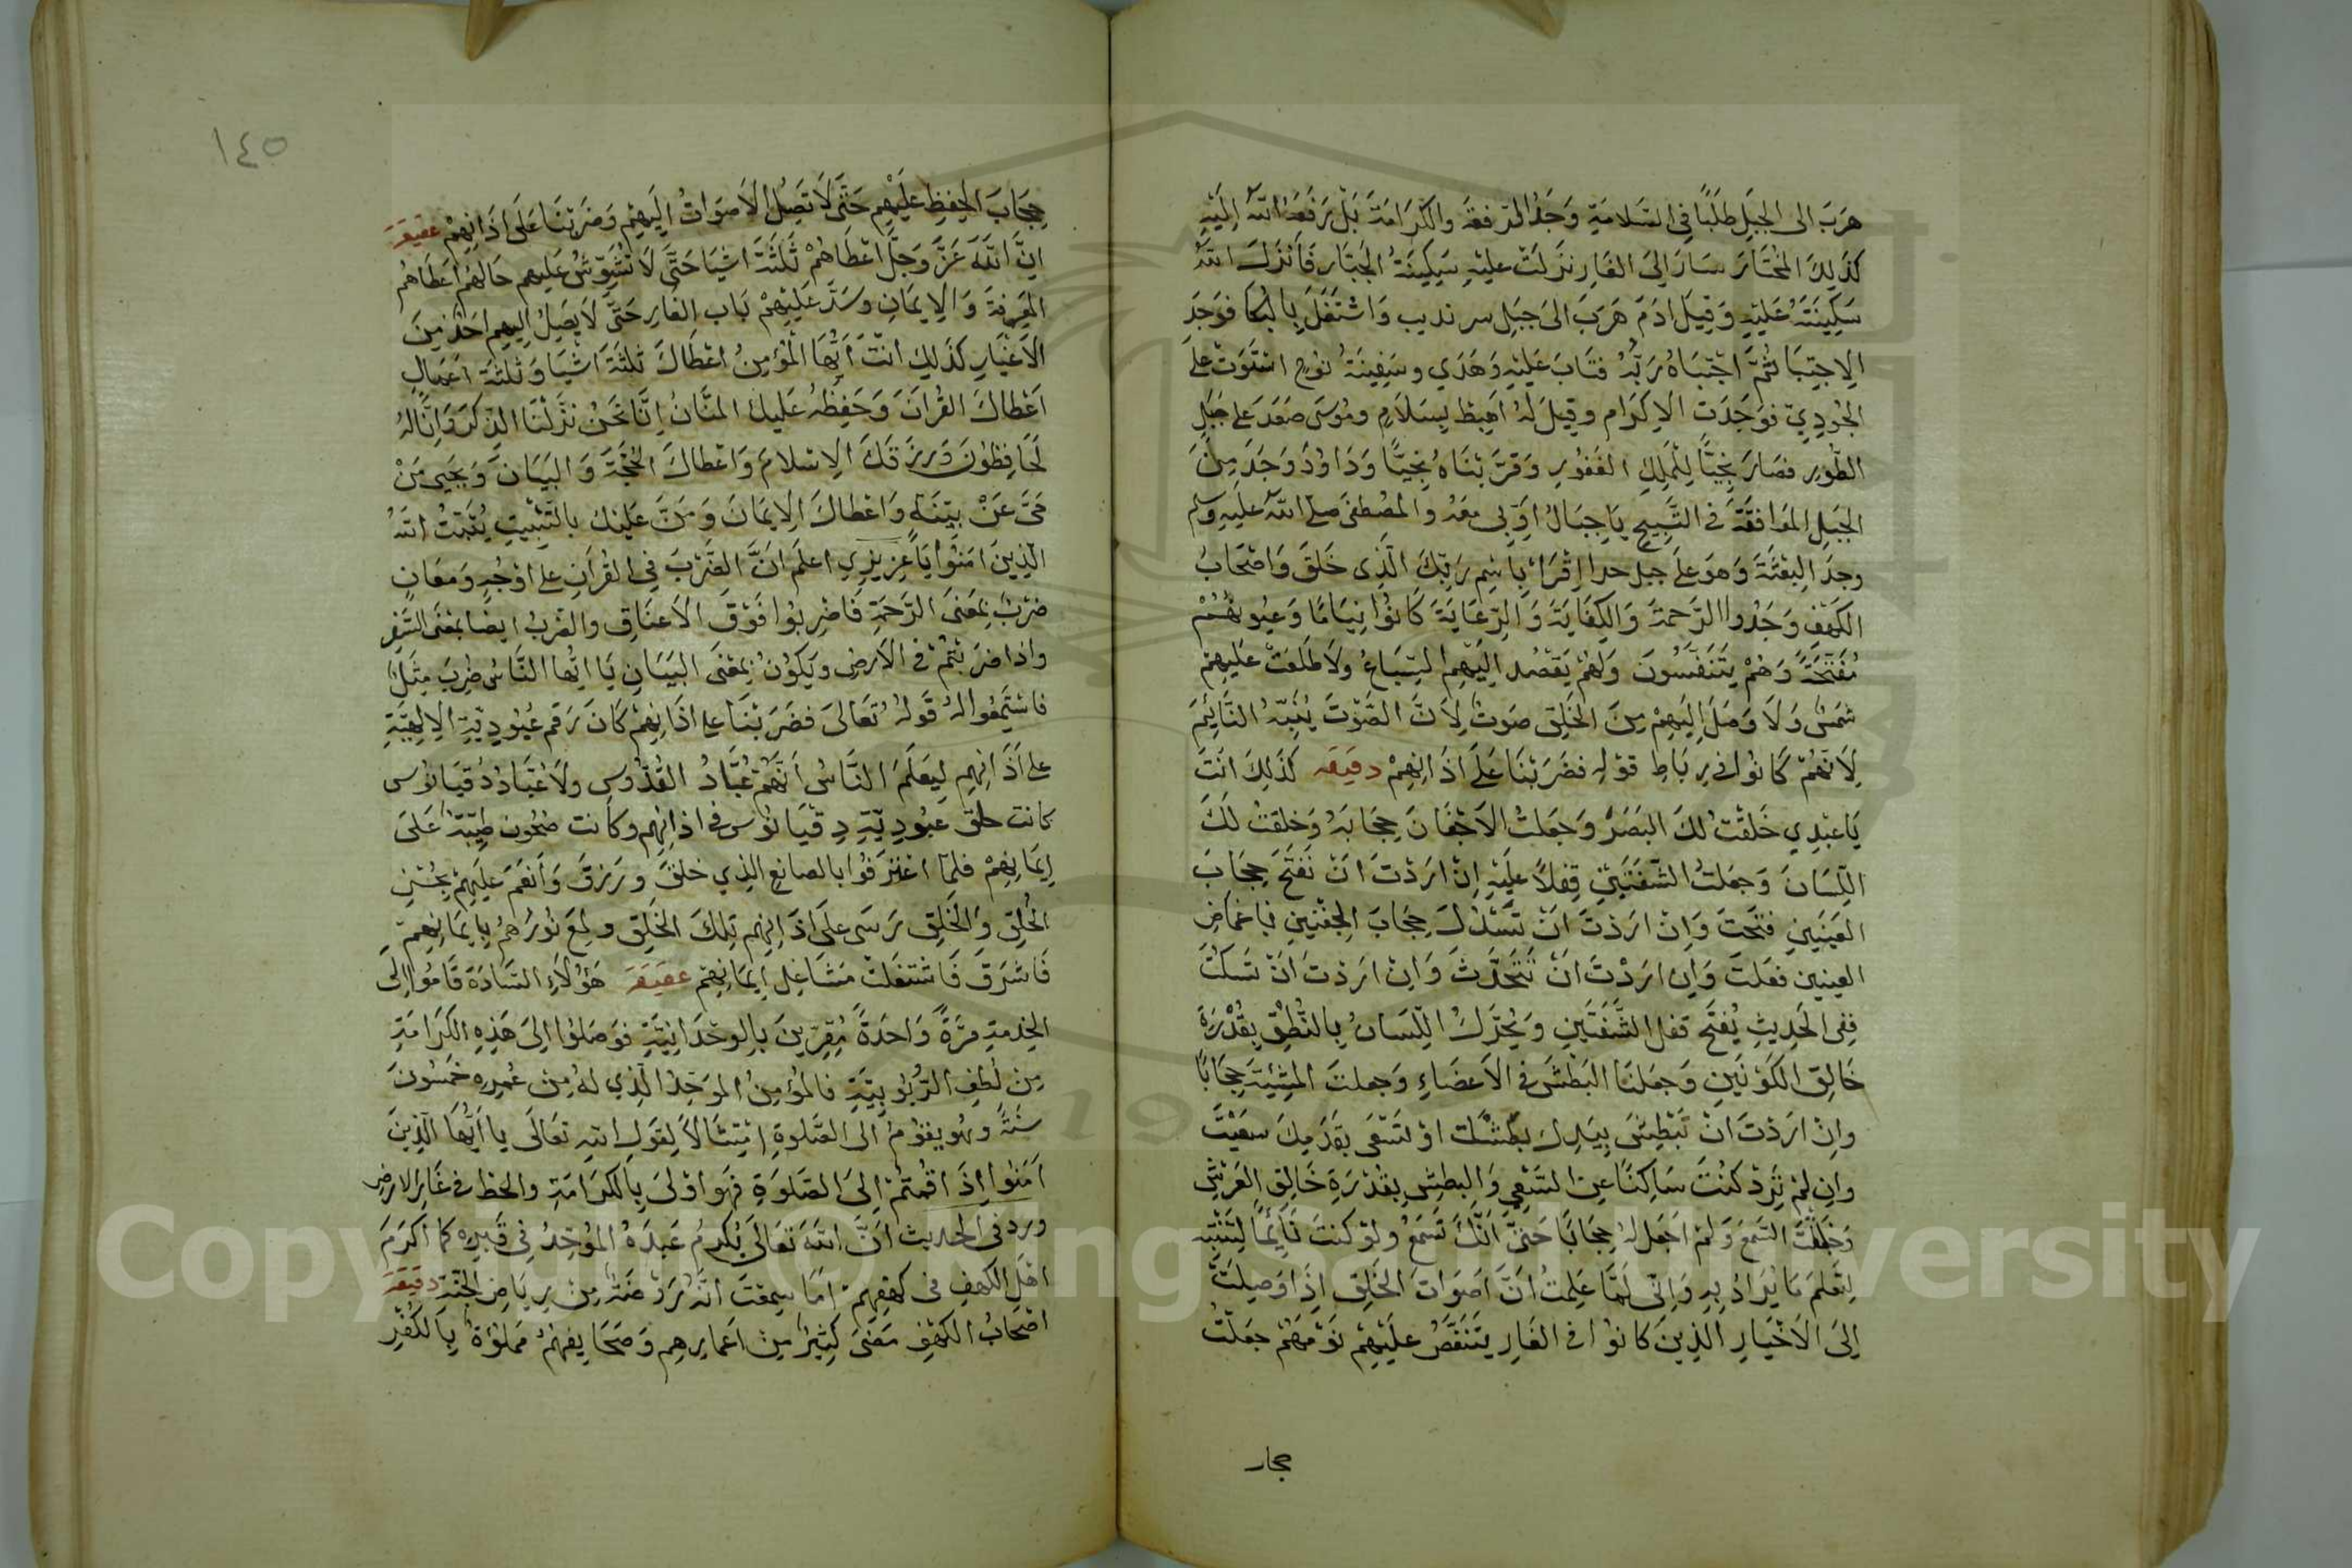 هَرَبَ الى الجَبَلِ طَلَبًا فِي السَّلامَةِ وَجَدَ الرفعَة والكَرَامَةَ بَلْ رَفَعَهُ اللّٰهُ اِلَيْهِ
كَذَلِكَ المُخْتَارَ سَارَ اِلىَ الغَارِ نَزَلَتْ عليْهِ سَكِينَةُ الجَبّار فَأَنْزَلَ اللّٰهُ
سَكِينَتَهُ عَليْهِ وَقِيلَ ادَمَ هَرَبَ الىَ جَبَلِ سرنديب وَاشْتغَلَ بِالبُكَا فوَجَدَ
الاِجتِبَا ثُمَّ اجْتَبَاهُ رَبُّهُ فتَابَ عَليْهِ وَهَدَي وسَفِينَةُ نوُح اسْتَوَتْ عَلىَ
الجُودِيّ فوَجَدَت الاِكرَام وقِيلَ لهُ اهبِط بِسَلاَمٍ ومُوسَى صَعَدَ عَلىَ جَبَلِ
الطُّورِ فصَارَ نجِيًّا لِلْمَلِكِ الغَفُورِ وَقرَّبْنَاهُ نجِيًّا وَدَاوُدَ وَجَدَ مِنَ
الجَبَلِ المُوَافقَةَ فى التَّسبِيحِ يَاجِبَالُ اَوّبِى معَهُ والمُصْطفىَ صلّى اللّٰه عَليهِ وسلم
وجَدَ البِعْثَةَ وَهوَ عَلىَ جبل حرا اِقْرَا بِاسْمِ رَبِّكَ الّذِى خَلَقَ وَاصْحَابُ
الكَهْفِ وَجَدُوا الرَّحمَةَ وَالكِفَايَةَ وَالرِّعَايَةَ كَانُوا نِيَامًا وَعيُونُهُمْ
مُفَتَّحَةً وَهُمْ يَتَنَفّسُونَ وَلمْ يَقصُد اِليْهِم السِّبَاعُ ولاَ طَلَعَتْ عَليهِمْ
شَمْسٌ وَلاَ وَصَلَ اِليَهِمْ مِنَ الخَلقِ صَوتٌ لاِنَّ الصَّوْتَ يُنَبِّهُ النَّايِمَ
لاِنَّهُمْ كَانُوا فى رِبَاطِ قوْلِهِ فَضَرَبْنَا عَلىَ اَذَانِهِمْ دقيقه كَذَلِكَ انتَ
يَاعَبْدِي خَلَقْتُ لَكَ البَصَرَ وَجَعَلتُ الاَجْفَانَ حِجَابَهُ وَخَلقتُ لَكَ
اللِّسَانَ وَجَعَلتُ الشَّفَتَيْنِ قِفْلاً عَليْهِ اِنْ ارَدْتَ انْ تَفتَحَ حِجَابَ
العَينَينِ فتَحتَ وَاِنْ ارَدْتَ انْ تَسْدُلَ حِجَابَ الجَفنَينِ فباغمَاضِ
العينين فعَلتَ وَاِن ارَدْتَ انْ تتَحَدَّثَ وَاِنْ ارَدْتَ انْ تسَكتَ
ففِى الحَدِيثِ يُفتَح قفلُ الشَّفَتَينِ وَيُحَرِّكُ اللّسَانُ بِالنُّطْقِ بِقُدْرَةِ
خَالِقِ الكَوْنَينِ وَجعَلنَا البَطْشَ فى الاَعضَاءِ وَجعلتُ المشِيئَةَ حِجَابًا
وانْ ارَدْتَ انْ تَبْطِشَ بِيَدِكَ بطَشْتَ اوْ تسْعَى بقَدَمِكَ سعَيْتَ
وانِ لمْ ترِدْ كنْتَ سَاكِنًا عنِ السَّعْىِ وَالبطشِ بِقُدْرَةِ خَالِقِ العَرْشِ
وَخَلَقْتُ السَّمعَ وَلمْ اجَعَل لهُ حِجَابًا حَتىَّ اَنَّكَ تَسْمَعُ ولوْ كنتَ نَايِمًا لتَنْتَبِه
لِتَعْلمَ مَا يُرَادُ بِهِ وَاِنّى لَمَّا عَلِمتُ انَّ اَصوَاتَ الخَلقِ اِذَا وَصِلَتْ
اِلىَ الاَخْيَارِ الّذِينَ كانوُا فى الغَارِ يتَنَغَّصُ عليْهِمْ نَوْمَهُمْ جعَلتُ
حجاب
١٤٥
حِجَابَ الحِفظِ عَليْهِم حَتَّى لاَ تصِلَ الاَصوَاتُ اِليَهِمْ وَضَرَبْنَا عَلىَ اذَانِهِمْ عقيقة
اِنَّ اللّٰهَ عَزَّ وَجَلَّ اعْطَاهُمْ ثَلثَةَ اشْيَا حَتَّى لاَ تُشَوّشُ عَليهِم حَالهُم اعَطَاهُم
المَعرِفَةَ وَالاِيمَانِ وسَدَّ عَليْهِمْ بَاب الغَارِ حَتَّى لاَ يَصِلُ اِليهِم احَدٌ مِنَ
الاَغْيَارِ كَذَلِكَ انتَ ايُّهَا المُؤمِنُ اعْطاكَ ثلثَةَ اشْيَا وَثلثَةَ اعمَالٍ
اَعْطاكَ القُرانَ وَحَفِظهُ عَليكَ المنَّانُ اِنَّا نَحْنُ نَزَّلْنَا الذِّكرَ وَاِنَّا لهُ
لحَافِظُونَ وَرزَقَكَ الاِسْلامَ وَاعْطاكَ الحُجَّةَ وَالبَيَانَ وَيحيَى مَنْ
حَىَّ عَنْ بيّنَةٍ وَاعْطَاكَ الاِيمَانَ وَمَنَّ عَليْكَ بالتَّثْبِيتِ يُثَبِّتُ اللّٰهُ
الّذِينَ امَنُوا يَاعَزِيزِي اعلَم انَّ الضَّرْبَ فِى القُرآنِ على اوْجُهٍ وَمَعَانٍ
ضرْبٌ بِمَعنىَ الرَّحمَةِ فَاضْرِبُوا فَوْقَ الاَعنَاقِ والضربُ ايضًا بمعْنَى السَّفرِ
واذا ضرَبْتُمْ فى الاَرضِ ويَكوُنُ بِمَعْنىَ البَيَانِ يَا ايُّها النَّاسُ ضُرِبَ مثَلٌ
فاسْتَمِعُوا لهُ قَولهُ تعَالىَ فضَرَبْنَا على اذَانِهِمْ كَانَ رَقم عُبُودِيّةِ الالِهِيَّةِ
على اَذَانِهِمِ لِيَعلَمَ النَّاسُ اَنَّهُمْ عُبَّادُ القُدُّوسِ ولاَ عُبّادُ دُقيَانوُس
كانت حلق عُبُودِيّةِ دِقيَانوُس فى اذانِهِم وكانت طيِّبَةً عَلىَ
اِيمَانِهِمْ فلمّا اعْتَرفُوا بالصانِعِ الذِي خلقَ ورَزَقَ وَاَنعَمَ عَليْهِمْ بحُسْنِ
الخُلقِ وَالخَلِقِ رَسَى علىَ اذَانِهِم تِلكَ الحَلَقِ ولمعَ نوُرُهُمْ بايمَانِهِمْ
فَاشرَقَ فَاشتعَلَتْ مَشَاعِلِ ايمَانِهِمْ عقيقة هَؤُلاَءِ السَّادَةَ قَامُوا اِلىَ
الخِدمَةِ مَرَّةً وَاحدَةً مُقِرّينَ بالوحْدَانِيَّةِ فوَصَلوُا اِلىَ هَذِهِ الكَرَامَةِ
مِن لُطفِ الرُّبُوبِيَّةِ فالمُؤمِنُ المُوَحِّدُ الّذِي لهُ مِنْ عُمرِهِ خمَسُونَ
سَنَةً وهُو يقوُمُ الى الصَّلوةِ امتِثالاً لِقوَلِ اللّٰهِ تعَالَى يا ايُّهَا الّذِينَ
اَمَنُوا اِذَا قمْتُمْ اِلىَ الصَّلوَةِ فَهوَ اوْلىَ بِالكَرَامَةِ والحظ فى غَارِ الارضِ
ورد فى الحَديث انَّ اللّٰهَ تَعَالىَ يُكرِمُ عَبدَهُ المُوَحِّدُ فِى قَبرِهِ كما اَكرَمَ
اهْلَ الكهفِ فى كهْفِهِمْ امَا سمِعْتَ انّهُ رَوْضَةٌ مِنْ رِيَاضِ الجَنّةِ دقيقة
اصْحَابُ الكَهْفِ مَضىَ كثِيرٌ مِن اعمَارِهِم وَصَحَايِفهُمْ مَملُؤَةٌ بِالكُفْرِ
Copyright © King Saud University